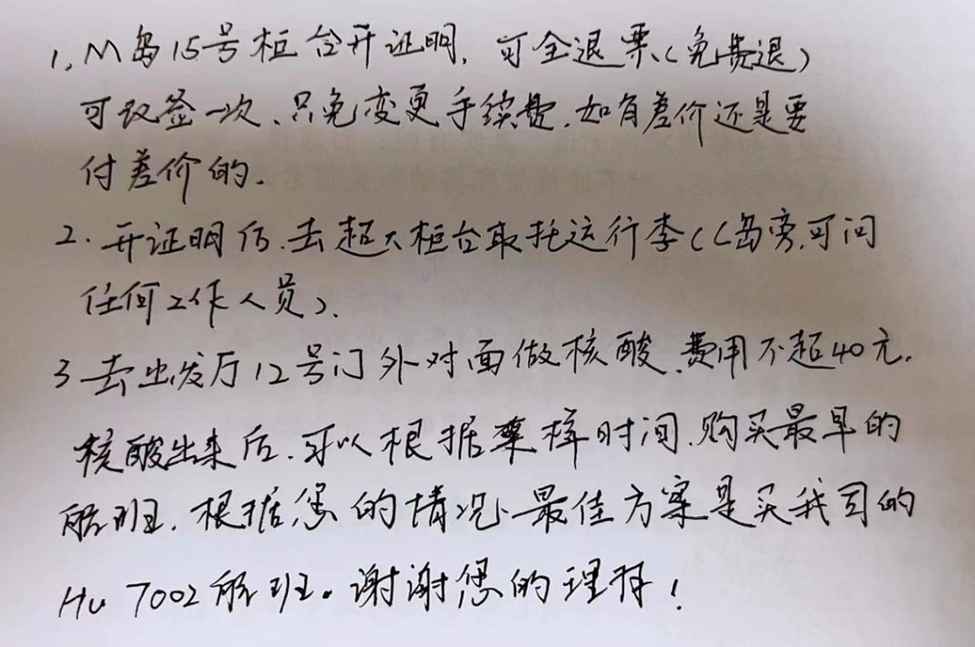 1, M岛15号柜台开证明,可全退票(免费退)
可改签一次、只免变更手续费.如有差价还是要
付差价的.
2.开证明后.去超大柜台取托运行李(C岛旁.可问
任何工作人员).
3去出发厅12号门外对面做核酸.费用不超40元.
核酸出来后.可以根据采样时间.购买最早的
航班.根据您的情况.最佳方案是买我司的
Hu 7002航班。谢谢您的理解!